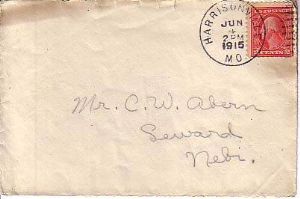 HARRISONV
JUN
2 PM
1915
MO.
Mr. C. W. Abern
Seward
Nebr.